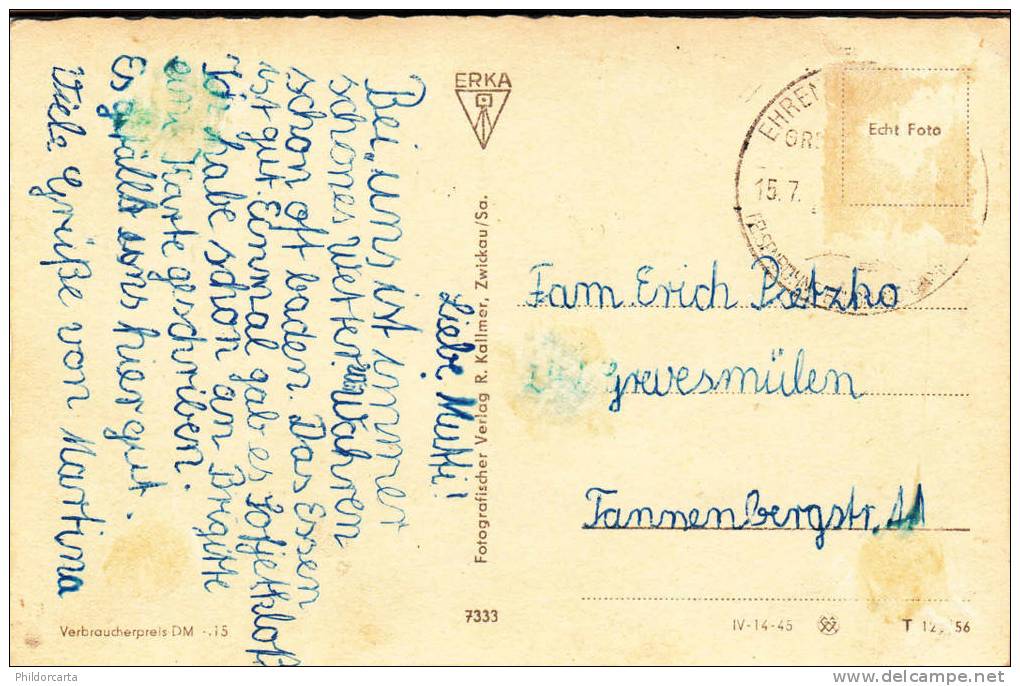 Liebe Mutti!
Bei uns ist immer
schönes Wetter. Wir wahren
schon oft baden. Das Essen
ist gut. Einmal gab es Sotjetkloß
Ich habe schon an Brigitte
eine Karte geschriben.
Es gefällt uns hier gut.
Viele Grüße von Martina
ERKA
Fotografischer Verlag R. Kallmer, Zwickau/Sa.
Echt Foto
EHREN
15.7.
Fam Erich Pätzho
Grevesmülen
Tannenbergstr. 11
Verbraucherpreis DM -.15
7333
IV-14-45
T 12 56
Phildorcarta
www.delcampe.net